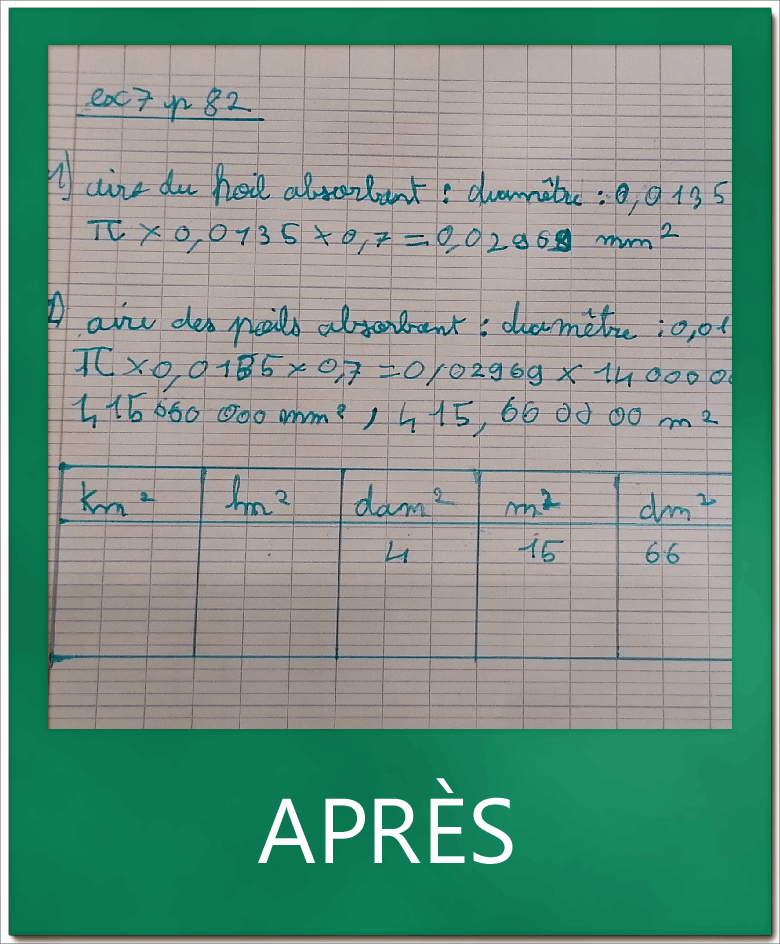 ex 7 p 82
1) aire du poil absorbant : diamêtre : 0,0135
π × 0,0135 × 0,7 = 0,02969 mm²
2) aire des poils absorbant : diamêtre : 0,01
π × 0,0135 × 0,7 = 0,02969 × 14 0000
415 660 000 mm², 415, 66 00 00 m²
km² hm² dam² m² dm²
4 15 66
APRÈS